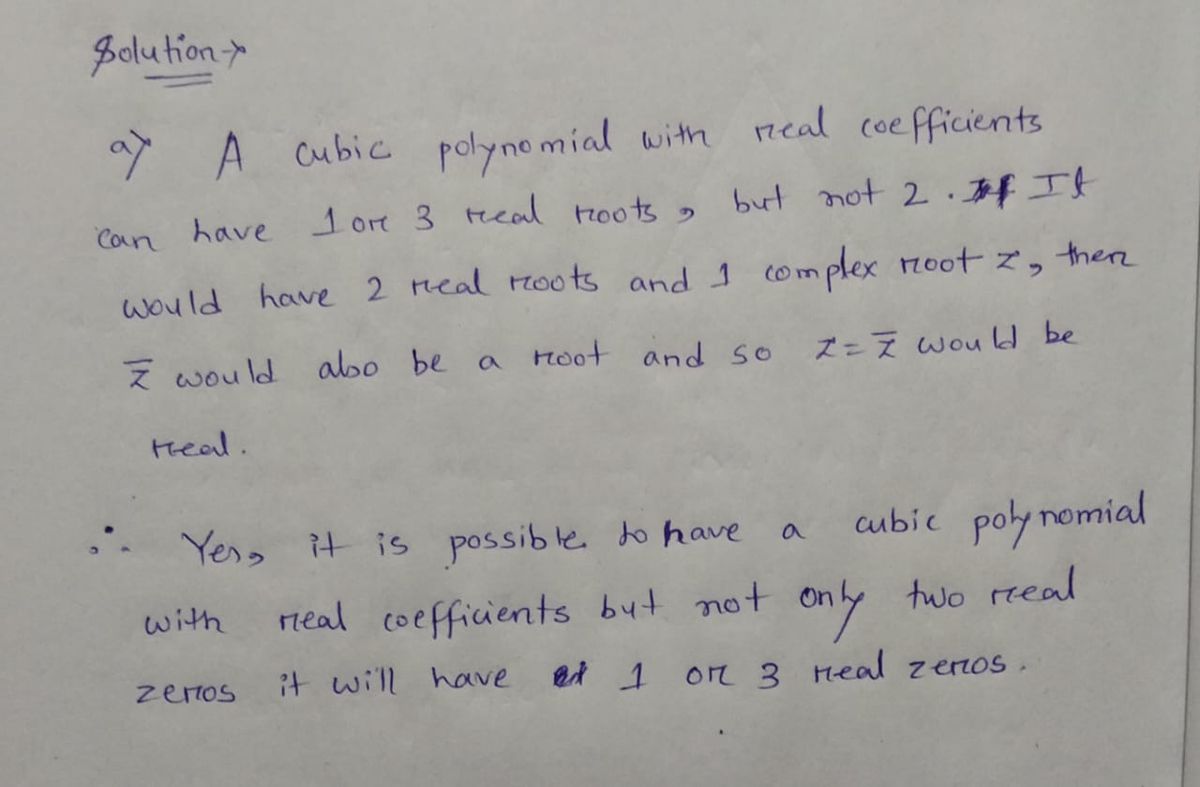 Solution →
a) A cubic polynomial with real coefficients
can have 1 or 3 real roots, but not 2. If
would have 2 real roots and 1 complex root z, then
z̅ would also be a root and so z = z̅ would be
real.
∴ Yes, it is possible to have a cubic polynomial
with real coefficients but not only two real
zeros it will have 1 or 3 real zeros.